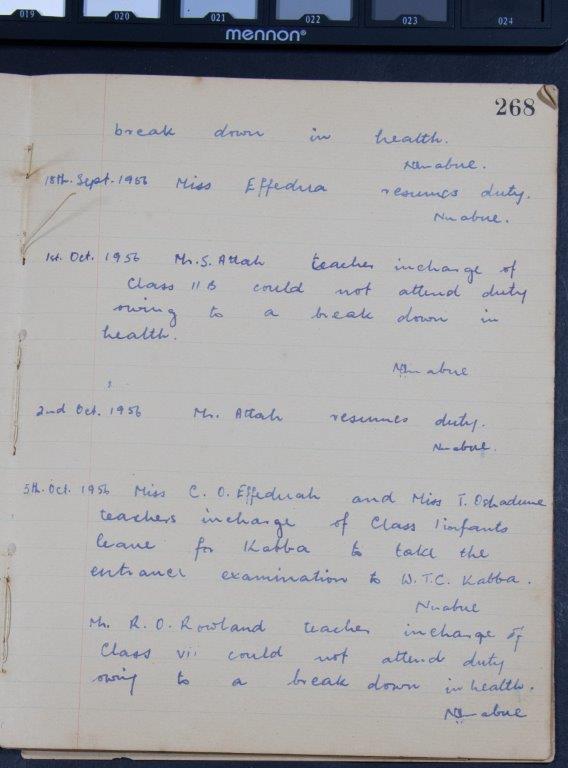 019 020 021 022 023 024
mennon®
268
break down in health.
Nwabue.
18th. Sept. 1956 Miss Effedua resumes duty.
Nwabue.
1st. Oct. 1956 Mr. S. Attah teacher incharge of
Class II B could not attend duty
owing to a break down in
health.
Nwabue
2nd Oct. 1956 Mr. Attah resumes duty.
Nwabue.
5th. Oct. 1956 Miss C. O. Effeduah and Miss T. Oshadume
teachers incharge of Class I infants
leave for Kabba to take the
entrance examination to W.T.C. Kabba.
Nwabue
Mr. R. O. Rowland teacher incharge of
Class vii could not attend duty
owing to a break down in health.
Nwabue